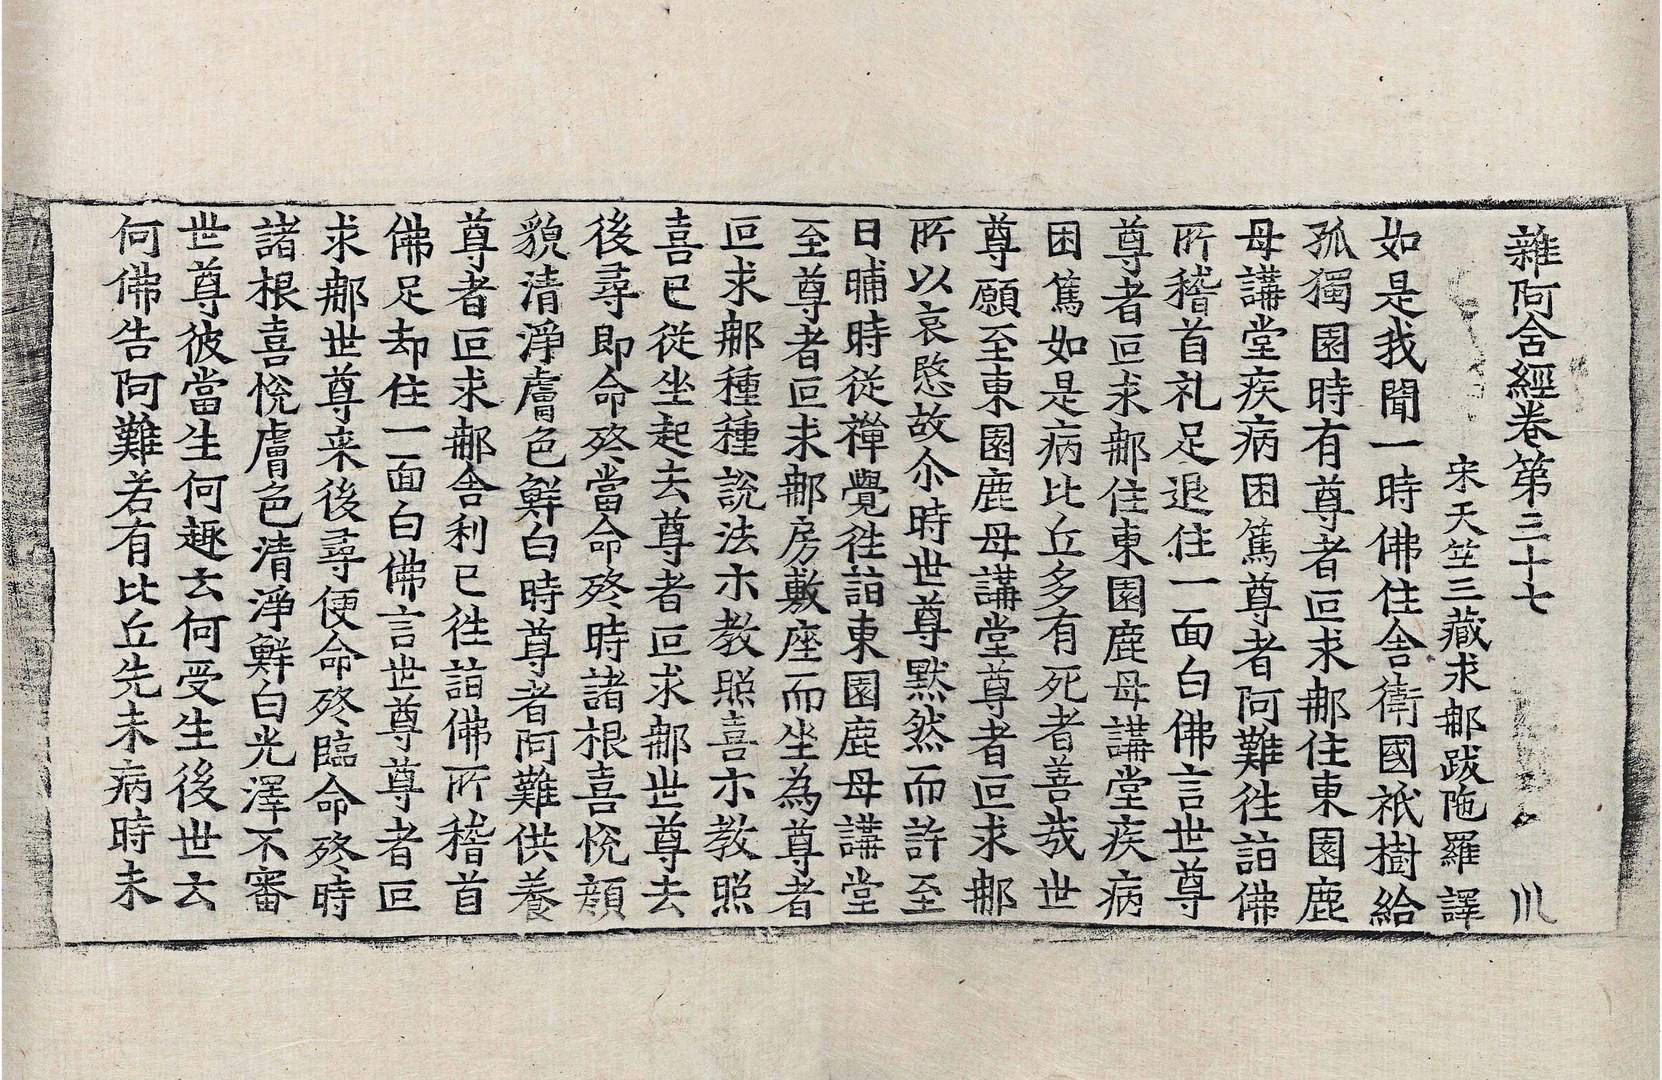 雜阿含經卷第三十七 川
宋天竺三藏求那跋陁羅 譯
如是我聞一時佛住舍衛國祇樹給
孤獨園時有尊者叵求那住東園鹿
母講堂疾病困篤尊者阿難往詣佛
所稽首礼足退住一面白佛言世尊
尊者叵求那住東園鹿母講堂疾病
困篤如是病比丘多有死者善哉世
尊願至東園鹿母講堂尊者叵求那
所以哀愍故尒時世尊默然而許至
日晡時從禪覺往詣東園鹿母講堂
至尊者叵求那房敷座而坐為尊者
叵求那種種說法示教照喜示教照
喜已從坐起去尊者叵求那世尊去
後尋即命終當命終時諸根喜悅顔
貌清淨膚色鮮白時尊者阿難供養
尊者叵求那舍利已往詣佛所稽首
佛足却住一面白佛言世尊尊者叵
求那世尊来後尋便命終臨命終時
諸根喜悅膚色清淨鮮白光澤不審
世尊彼當生何趣云何受生後世云
何佛告阿難若有比丘先未病時未